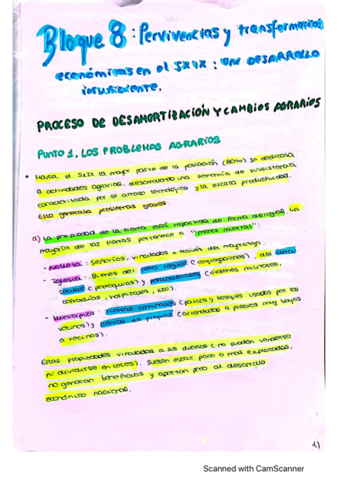 Bloque 8: Pervivencias y transformaciones
económicas en el SXIX: UN DESARROLLO
insuficiente.
PROCESO DE DESAMORTIZACIÓN Y CAMBIOS AGRARIOS
PUNTO 1. LOS PROBLEMAS AGRARIOS
• Hasta el S.XIX la mayor parte de la población (80%) se dedicaba
a actividades agrarias, desarrollando una economía de subsistencia
caracterizada por el atraso tecnológico y la escasa productividad.
Esto generaba problemas graves:
a) La propiedad de la tierra está repartida de forma desigual. La
mayoría de las tierras pertenecía a "manos muertas":
- Nobleza: señoríos, vinculados a través del mayorazgo.
- Iglesia: Bienes del clero regular (congregaciones), del clero
secular (parroquias) y
cofradías, hospitales, etc).
- Municipios: tierras comunales (pastos y bosques usados por los
vecinos) y tierras de propios (arrendadas a precios muy bajos
a vecinos).
Estas propiedades vinculadas a sus dueños (no pueden venderse
ni dividirse en lotes). Suelen estar poco o mal explotadas,
no generan beneficios y aportan poco al desarrollo
económico nacional.
1)
Scanned with CamScanner